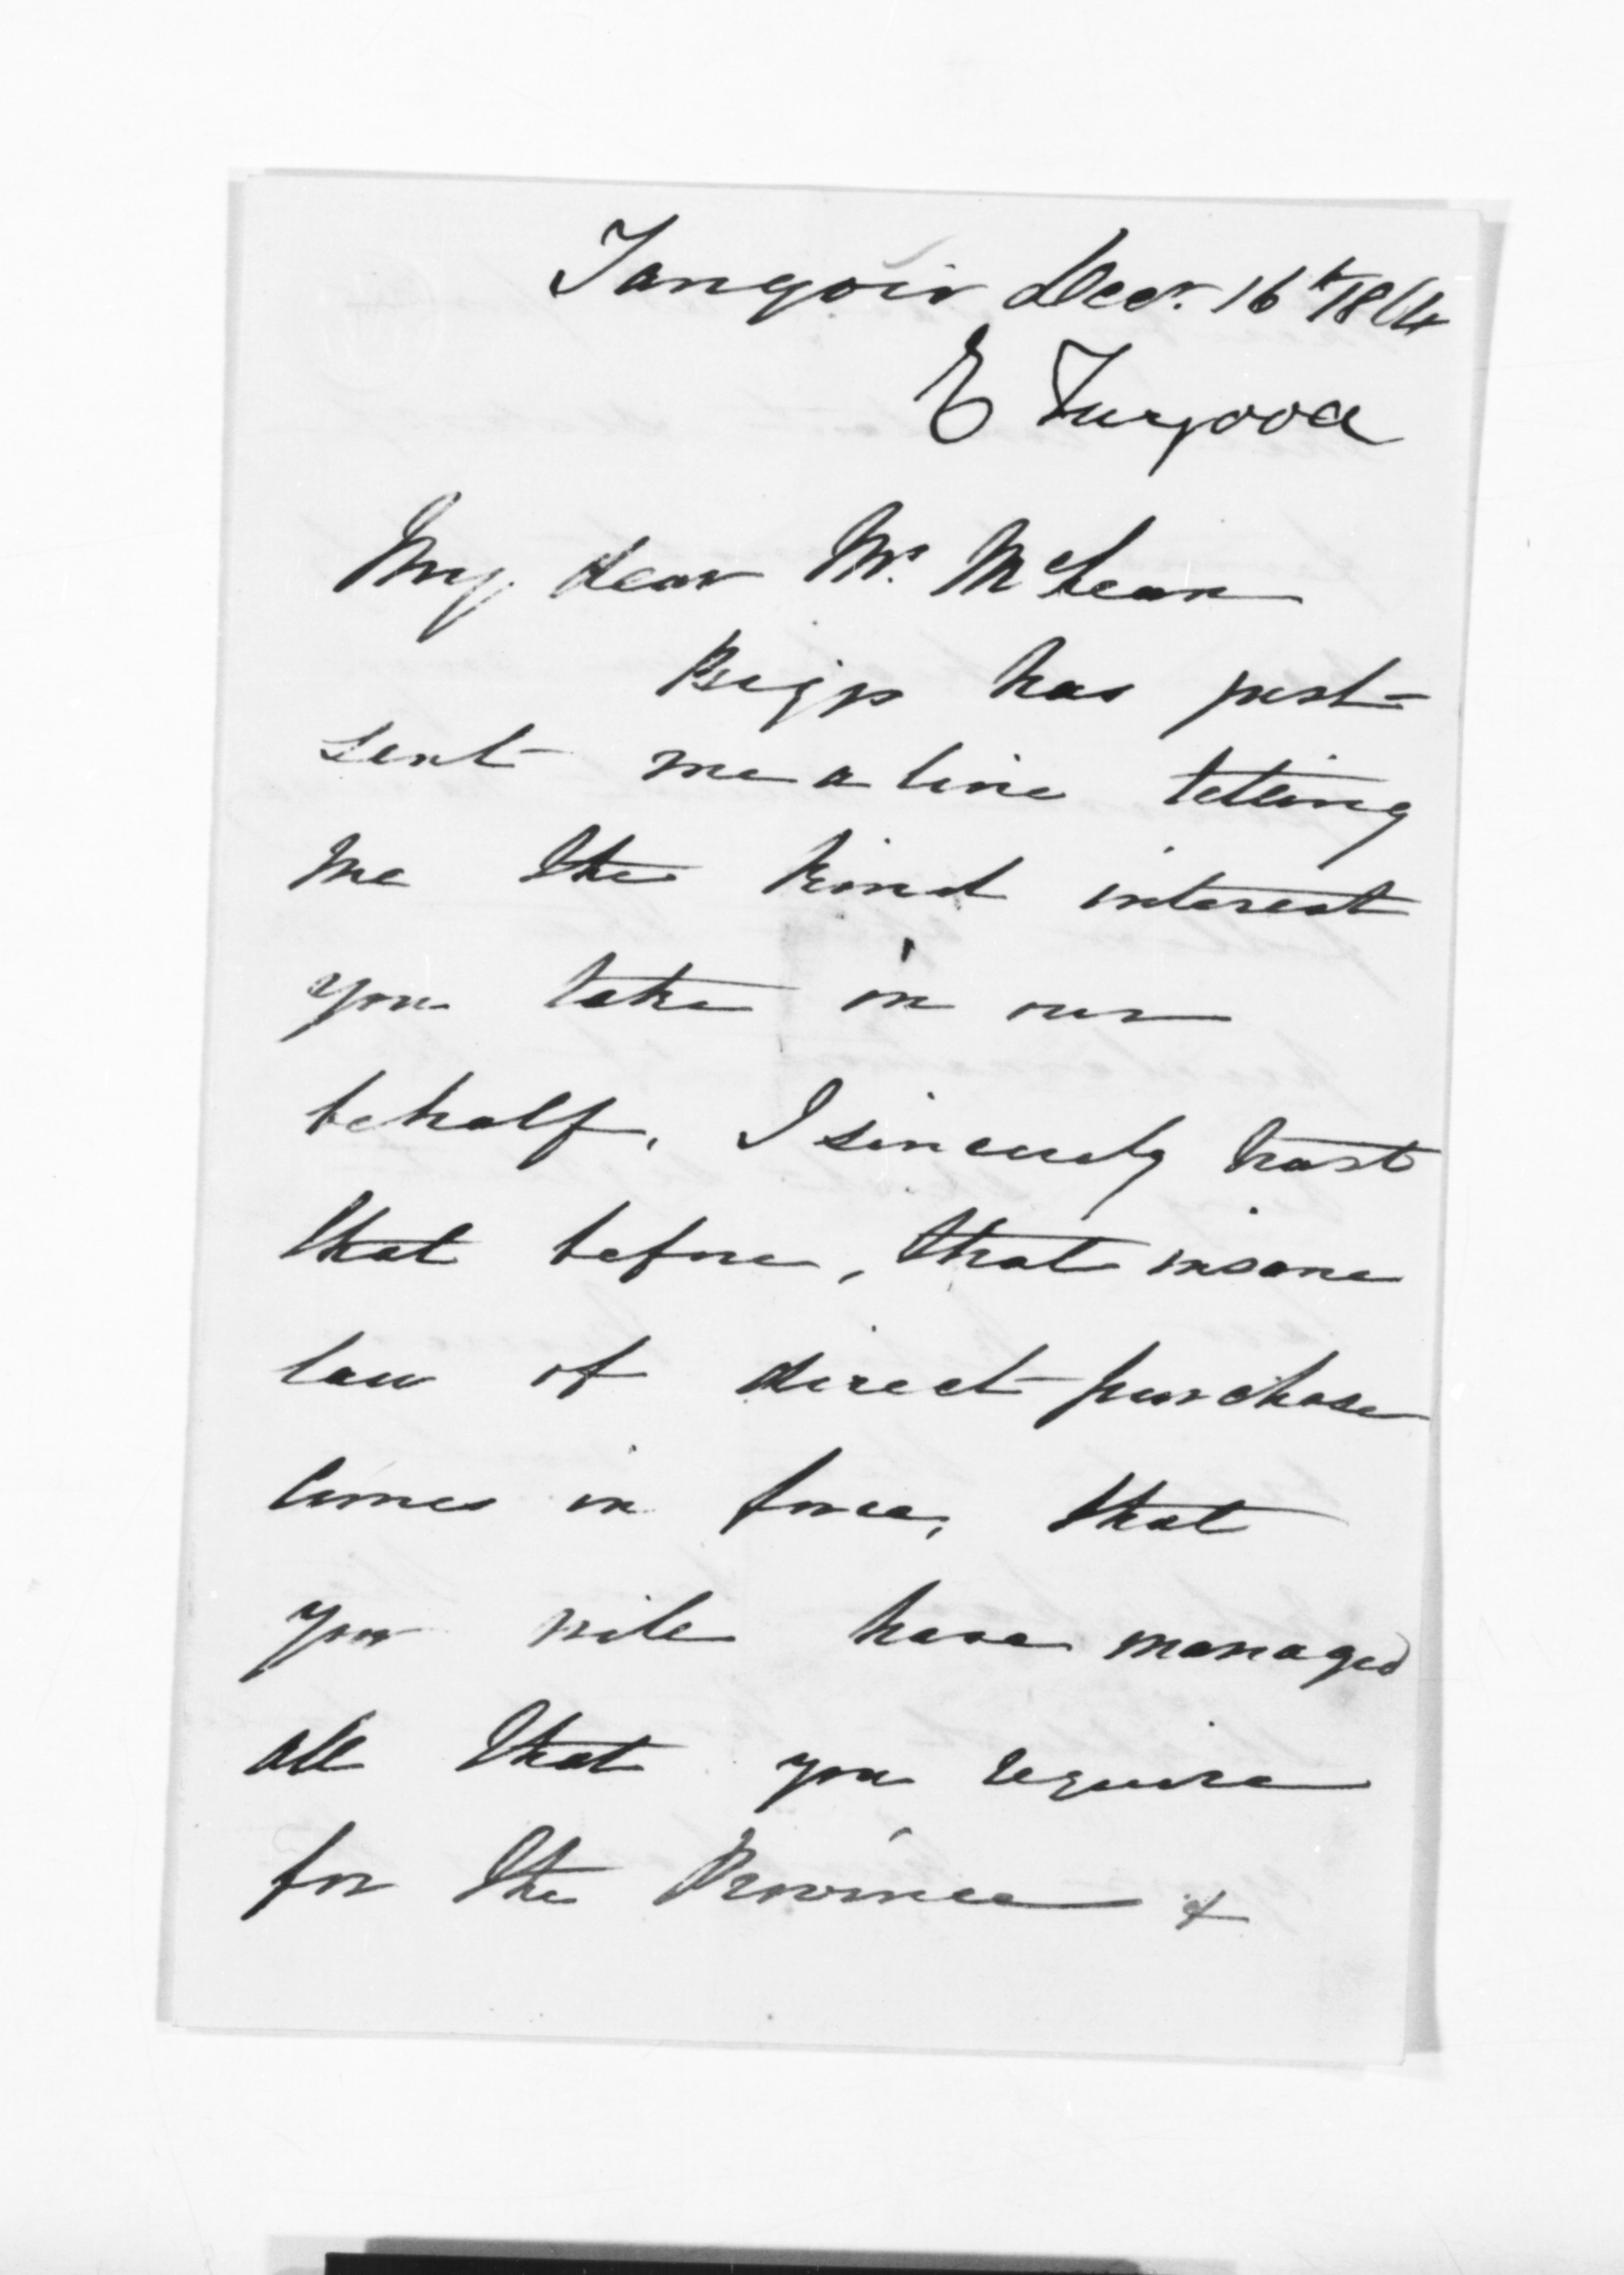 Tangoio Decr. 16th 1864
E Tuxgood
My dear Mr. McLean
Biggs has just
sent me a line telling
me the kind interest
you take in our
behalf. I sincerely trust
that before, that insane
law of direct purchase
comes in force, that
you will have managed
all that you require
for the Province &